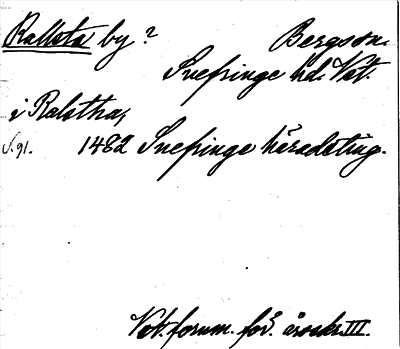 Rallsta by? Bergson.
Snefringe hd. Vst.
i Ralstha,
S. 91. 1482 Snefringe häradsting.
Vst. fornm. för. årsskr. III.